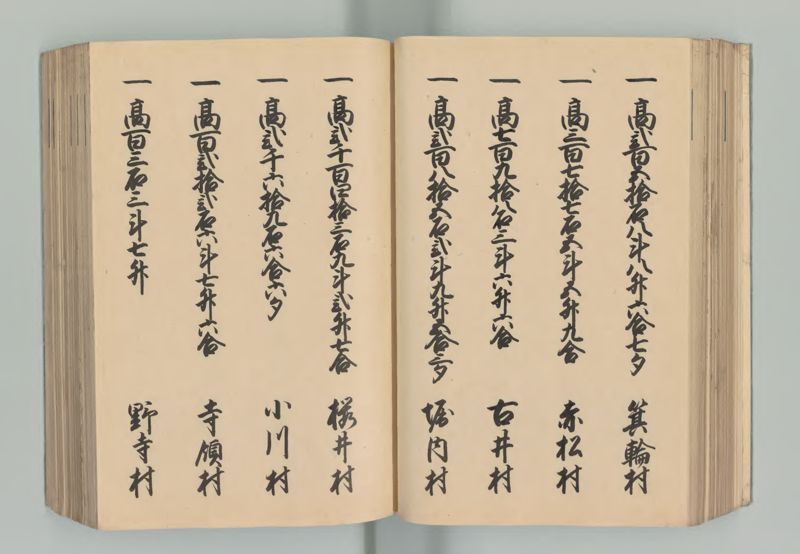 一 高弐百五拾石八斗八升六合七夕 箕輪村
一 高三百七拾七石五斗五升九合 赤松村
一 高七百九拾八石三斗六升六合 古井村
一 高弐百八拾五石弐斗九升五合三夕 堀内村
一 高弐千百四拾三石九斗弐升七合 桜井村
一 高弐千六拾九石六合六夕 小川村
一 高百弐拾弐石六斗七升六合 寺領村
一 高百三石三斗七升 野寺村